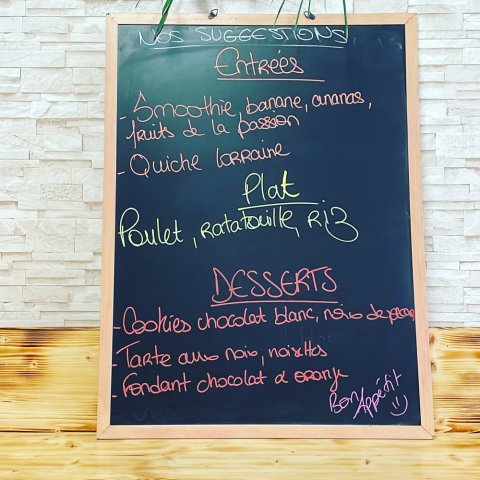 NOS SUGGESTIONS
Entrées
- Smoothie, banane, ananas,
fruits de la passion
- Quiche lorraine
Plat
Poulet, Ratatouille, Riz
DESSERTS
- Cookies chocolat blanc, noix de pecan
- Tarte aux noix, noisettes
- Fondant chocolat & orange
Bon
Appétit :)